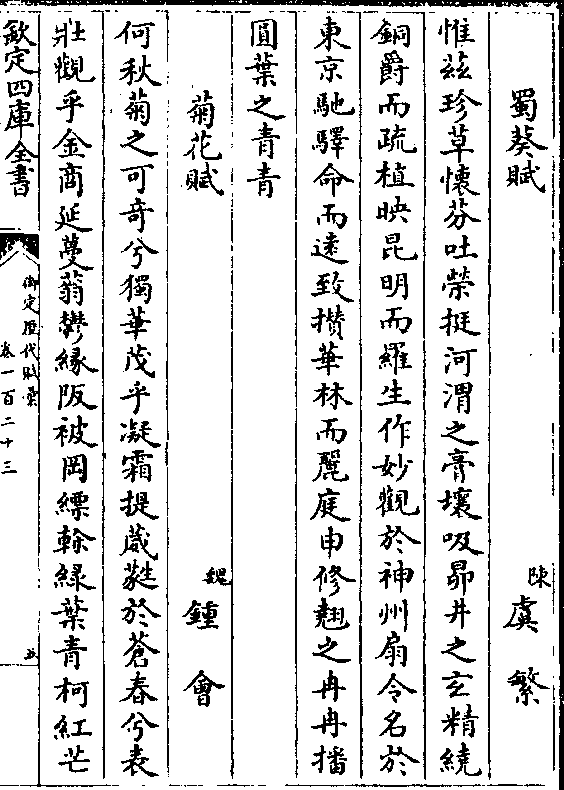 蜀葵賦
陳虞繁
惟茲珍草懷芬吐榮挺河渭之膏壤吸昴井之玄精繞
銅爵而疏植映昆明而羅生作妙觀於神州扇令名於
東京馳驛命而遠致攅華林而麗庭申修翹之冉冉播
圓葉之青青
菊花賦
魏鍾會
何秋菊之可奇兮獨華茂乎凝霜提葳蕤於蒼春兮表
壯觀乎金商延蔓蓊鬱緣阪被岡縹榦緑葉青柯紅芒
欽定四庫全書
御定歷代賦彙
卷一百二十三
五